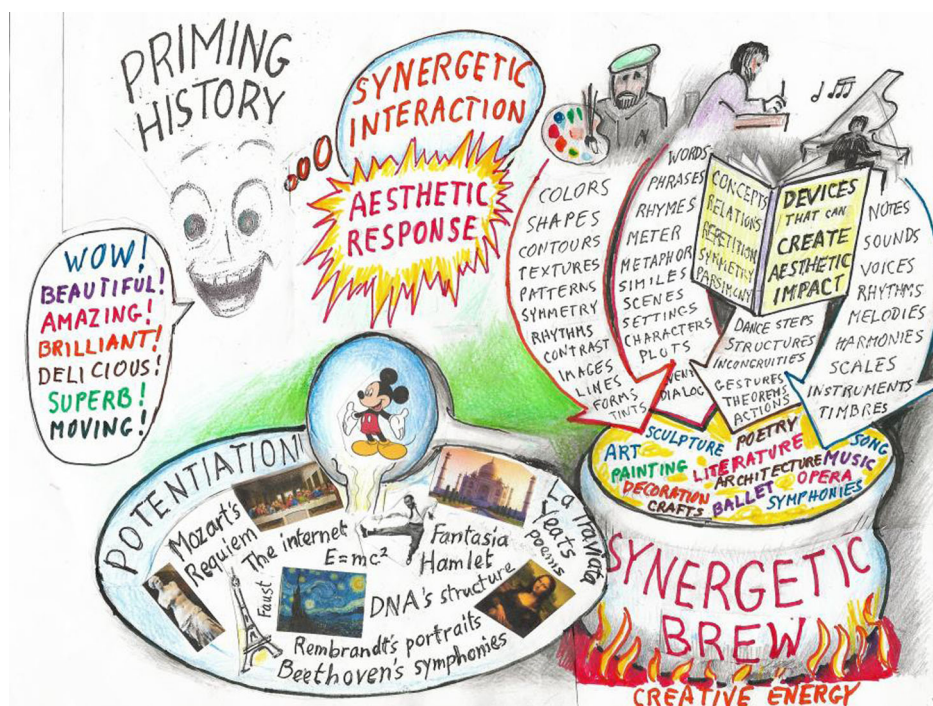 PRIMING
HISTORY
SYNERGETIC
INTERACTION
AESTHETIC
RESPONSE
WOW!
BEAUTIFUL!
AMAZING!
BRILLIANT!
DELICIOUS!
SUPERB!
MOVING!
COLORS
SHAPES
CONTOURS
TEXTURES
PATTERNS
SYMMETRY
RHYTHMS
CONTRAST
IMAGES
LINES
FORMS
TINTS
WORDS
PHRASES
RHYMES
METER
METAPHOR
SIMILES
SCENES
SETTINGS
CHARACTERS
PLOTS
DIALOG
CONCEPTS
RELATIONS
REPETITION
SYMMETRY
PARSIMONY
DEVICES
THAT CAN
CREATE
AESTHETIC
IMPACT
DANCE STEPS
STRUCTURES
INCONGRUITIES
GESTURES
THEOREMS
ACTIONS
NOTES
SOUNDS
VOICES
RHYTHMS
MELODIES
HARMONIES
SCALES
INSTRUMENTS
TIMBRES
ART
SCULPTURE
POETRY
SONG
PAINTING
LITERATURE
MUSIC
ARCHITECTURE
DECORATION
OPERA
CRAFTS
BALLET
SYMPHONIES
SYNERGETIC
BREW
CREATIVE ENERGY
POTENTIATION
Mozart's
Requiem
The internet
E=mc²
Faust
Fantasia
Hamlet
La Traviata
Yeats
poems
DNA's structure
Rembrandt's portraits
Beethoven's symphonies